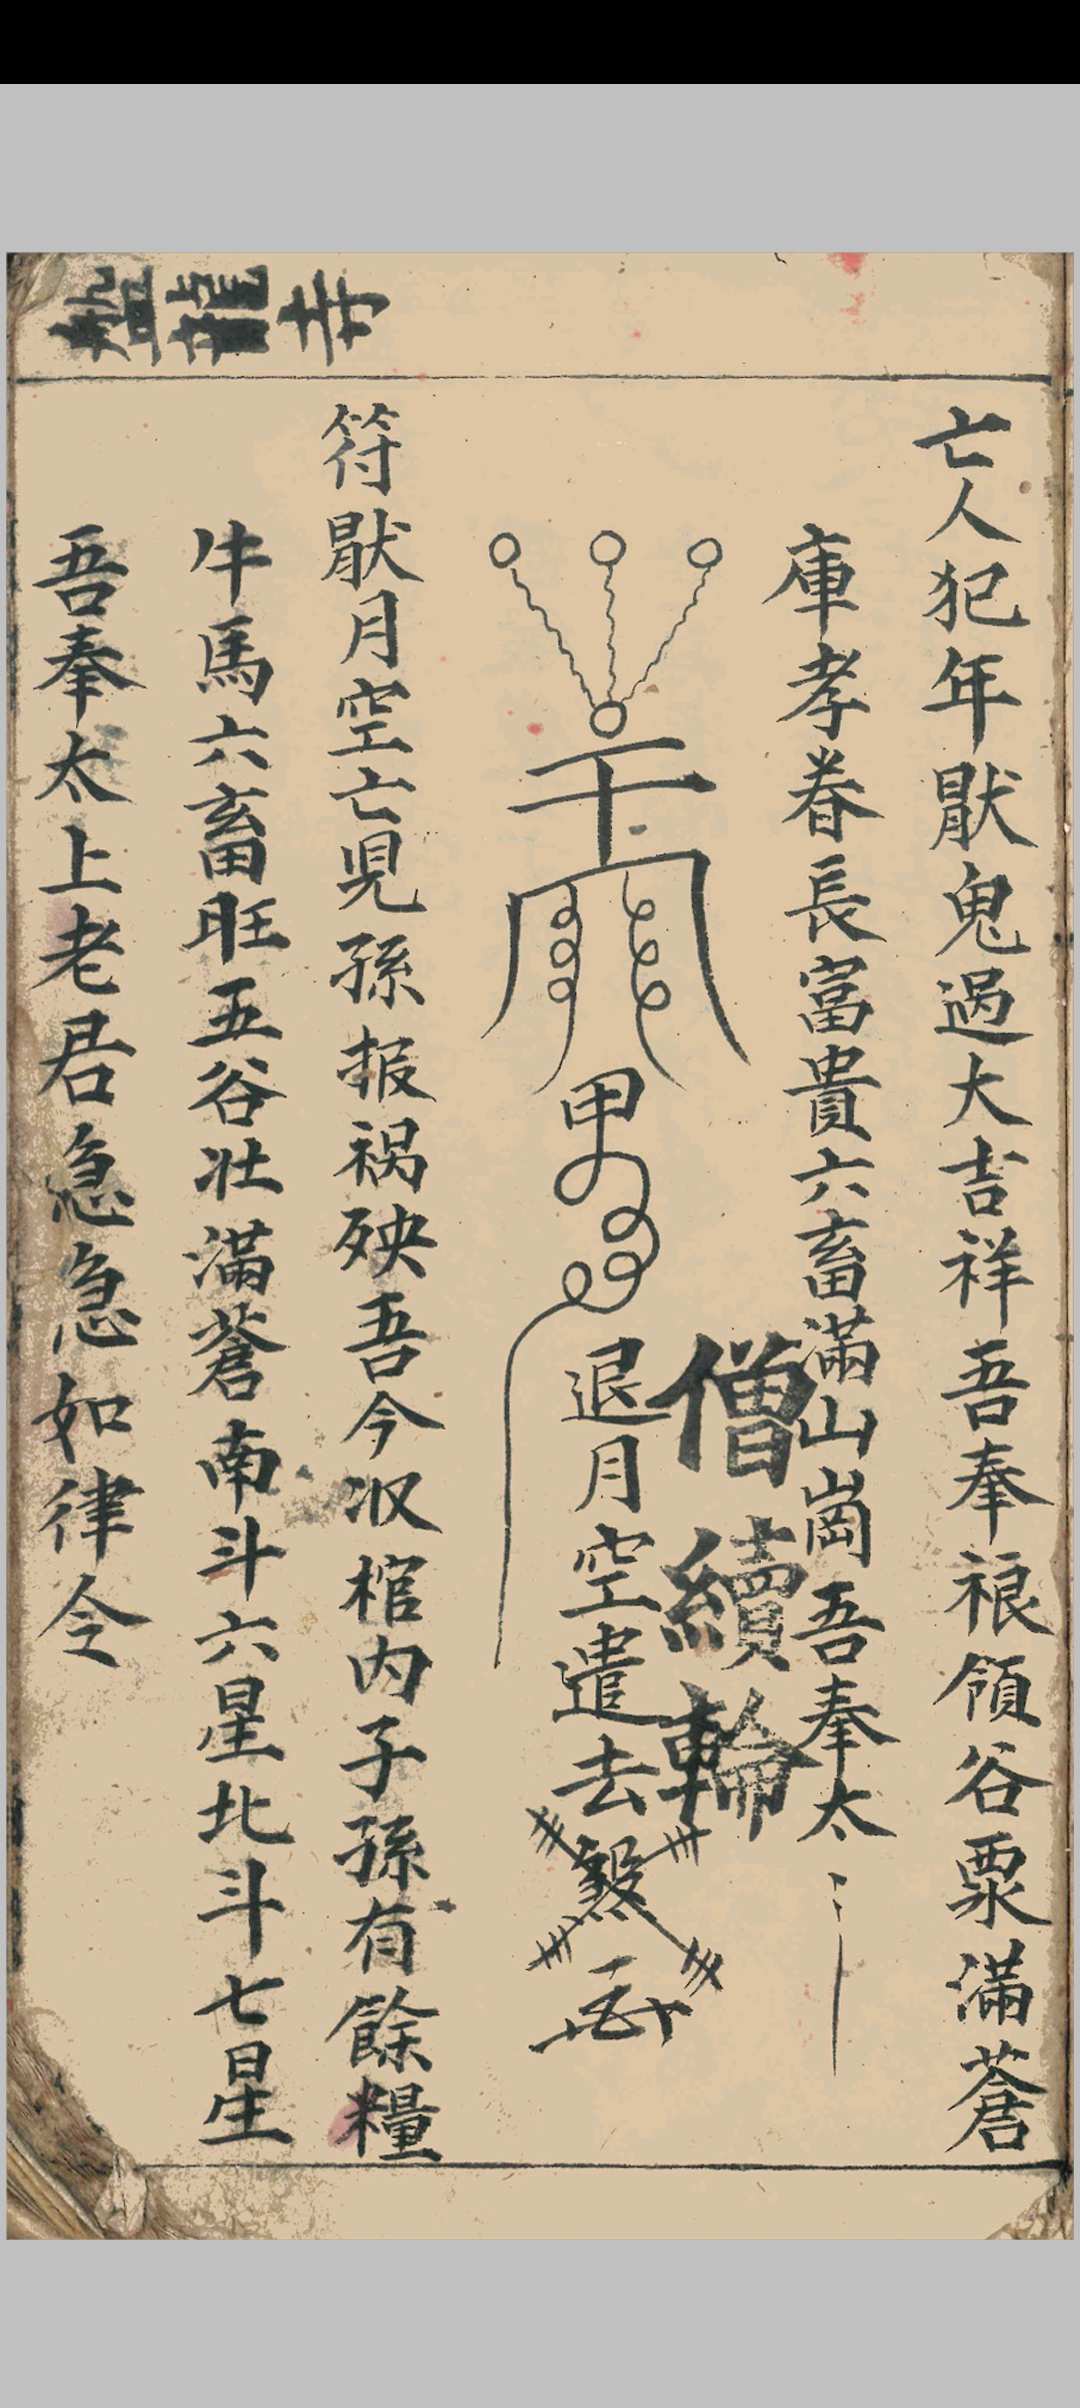 亡人犯年猒鬼過大吉祥吾奉裉領谷粟滿蒼
庫孝眷長富貴六畜滿山崗吾奉太
僧續輪
甲
退月空遣去煞
符猒月空亡鬼孫报禍殃吾今収棺内子孫有餘糧
牛馬六畜旺五谷壮滿蒼南斗六星北斗七星
吾奉太上老君急急如律令